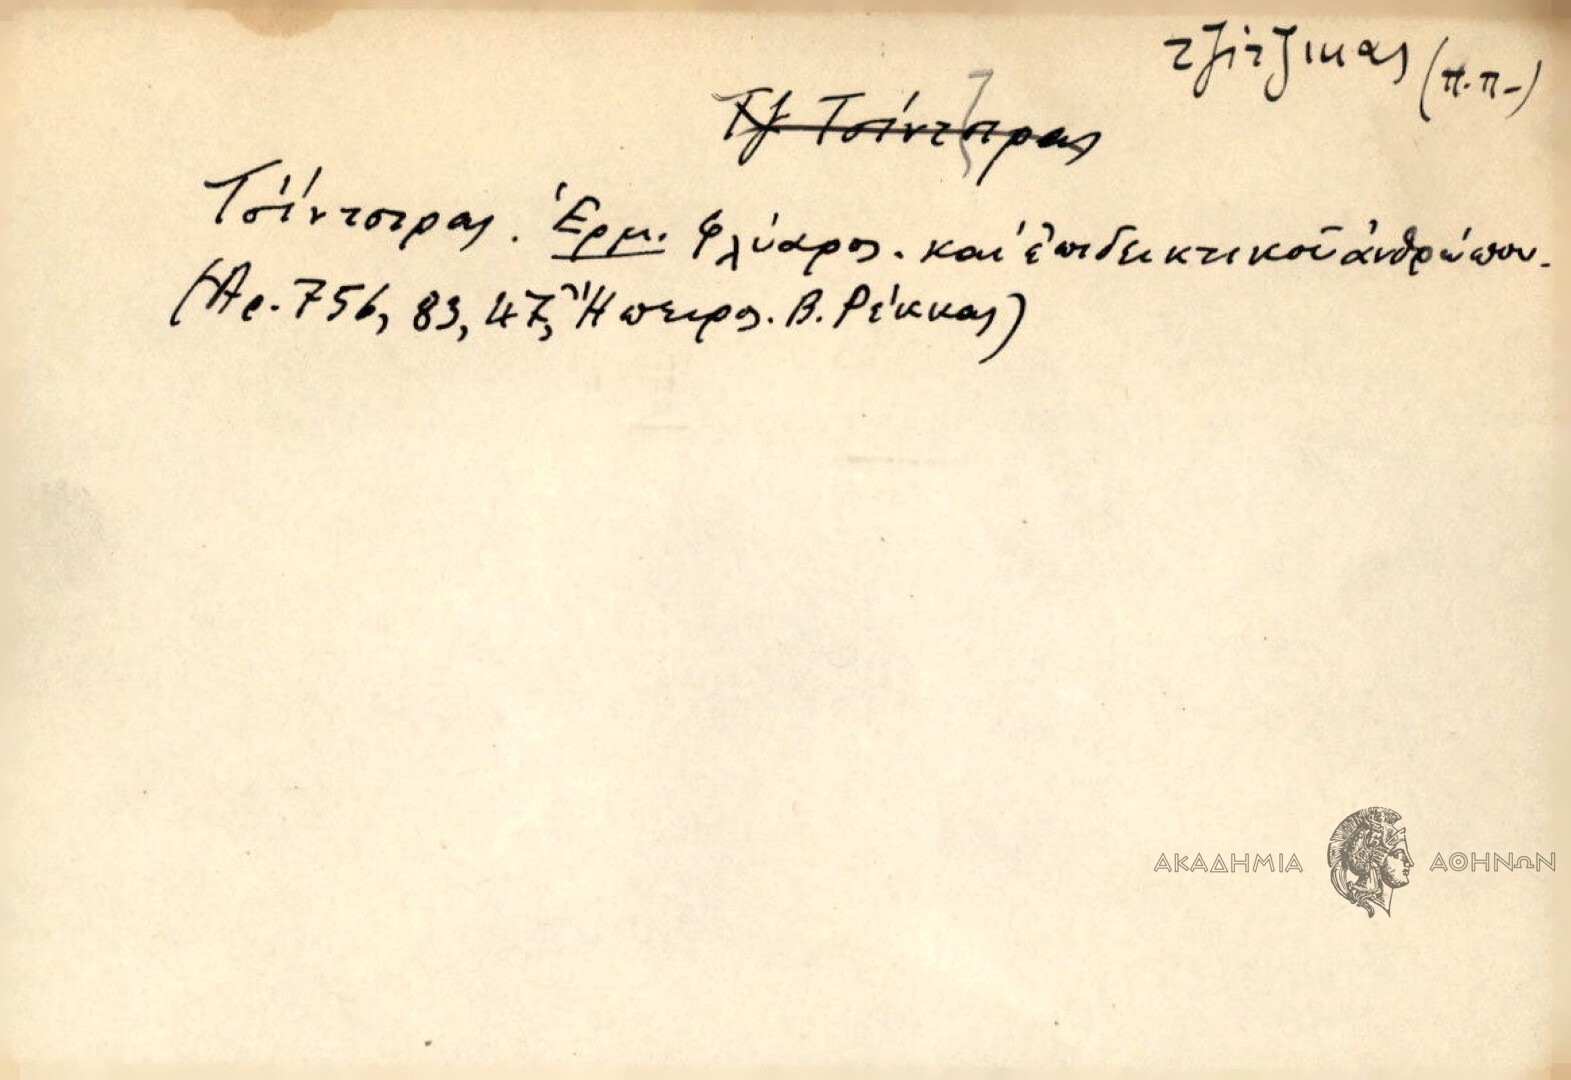 τζίτζικας (π.π-)
Τζ Τσίντσιρας
Τσίντσιρας. Ἑρμ. Φλύαρος. καί ἐπιδεικτικοῦ ἀνθρώπου.
(Ἀρ. 756, 83, 47, Ἤπειρος. Β. Ρέκκας)
ΑΚΑΔΗΜΙΑ ΑΘΗΝΩΝ